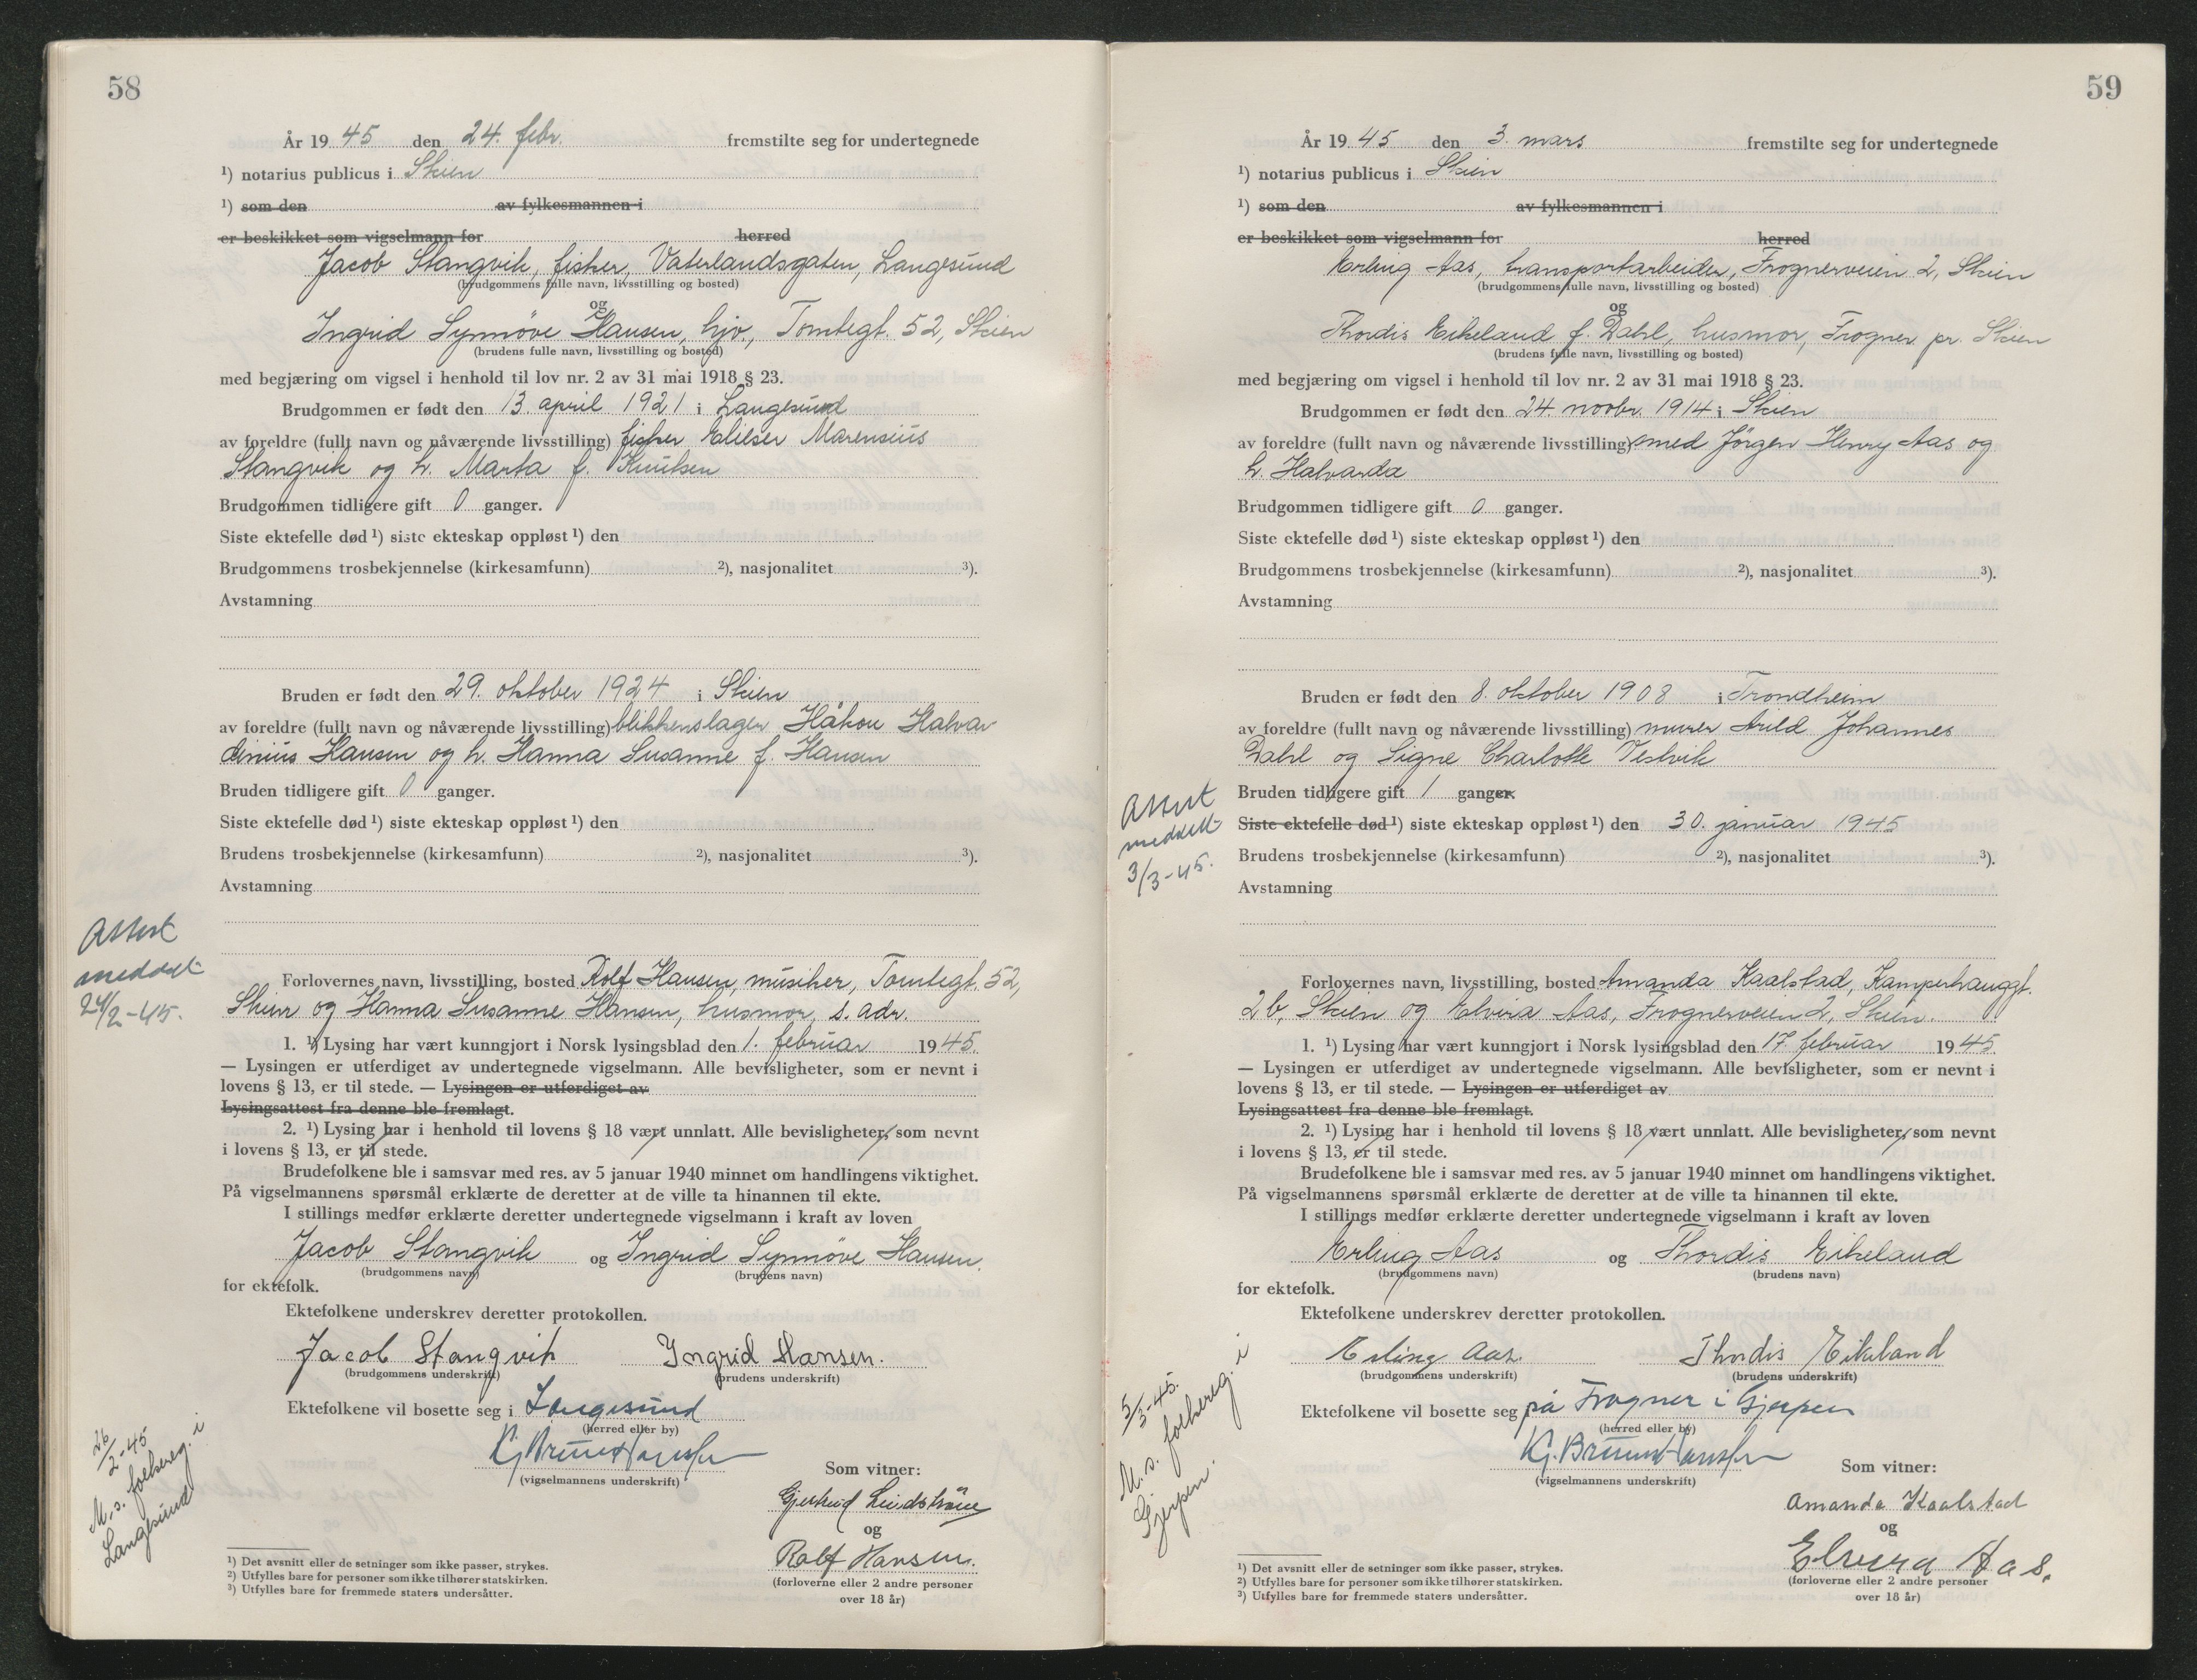 58
År 19 45 den 24. febr. fremstilte seg for undertegnede
¹) notarius publicus i Skien
¹) som den av fylkesmannen i
er beskikket som vigselmann for herred
Jacob Stangvik, fisker, Vaterlandsgaten, Langesund
(brudgommens fulle navn, livsstilling og bosted)
og
Ingrid Synnöve Hansen, hjv., Tomtegt. 52, Skien
(brudens fulle navn, livsstilling og bosted)
med begjæring om vigsel i henhold til lov nr. 2 av 31 mai 1918 § 23.
Brudgommen er født den 13. april 1921 i Langesund
av foreldre (fullt navn og nåværende livsstilling) fisker Elieser Marensius
Stangvik og h. Marta f. Knutsen
Brudgommen tidligere gift 0 ganger.
Siste ektefelle død ¹) siste ekteskap oppløst ¹) den
Brudgommens trosbekjennelse (kirkesamfunn) ²), nasjonalitet ³).
Avstamning
Bruden er født den 29. oktober 1924 i Skien
av foreldre (fullt navn og nåværende livsstilling) blikkenslager Håkon Halvar
dinius Hansen og h. Hanna Susanne f. Hansen
Bruden tidligere gift 0 ganger.
Siste ektefelle død ¹) siste ekteskap oppløst ¹) den
Brudens trosbekjennelse (kirkesamfunn) ²), nasjonalitet ³).
Avstamning
Attest
meddelt
24/2-45.
Forlovernes navn, livsstilling, bosted Rolf Hansen, musiker, Tomtegt. 52,
Skien og Hanna Susanne Hansen, husmor, s. adr.
1. ¹) Lysing har vært kunngjort i Norsk lysingsblad den 1. februar 19 45.
— Lysingen er utferdiget av undertegnede vigselmann. Alle bevisligheter, som er nevnt i
lovens § 13, er til stede. — Lysingen er utferdiget av
Lysingsattest fra denne ble fremlagt.
2. ¹) Lysing har i henhold til lovens § 18 vært unnlatt. Alle bevisligheter, som nevnt
i lovens § 13, er til stede.
Brudefolkene ble i samsvar med res. av 5 januar 1940 minnet om handlingens viktighet.
På vigselmannens spørsmål erklærte de deretter at de ville ta hinannen til ekte.
I stillings medfør erklærte deretter undertegnede vigselmann i kraft av loven
Jacob Stangvik og Ingrid Synnöve Hansen.
(brudgommens navn) (brudens navn)
for ektefolk.
Ektefolkene underskrev deretter protokollen.
Jacob Stangvik Ingrid Hansen.
(brudgommens underskrift) (brudens underskrift)
Ektefolkene vil bosette seg i Langesund
(herred eller by)
(vigselmannens underskrift)
26/2-45
M. s. folkereg. i
Langesund
Som vitner:
Gjertrud Lindström
og
Rolf Hansen.
(forloverne eller 2 andre personer
over 18 år)
¹) Det avsnitt eller de setninger som ikke passer, strykes.
²) Utfylles bare for personer som ikke tilhører statskirken.
³) Utfylles bare for fremmede staters undersåtter.
59
År 19 45 den 3. mars fremstilte seg for undertegnede
¹) notarius publicus i Skien
¹) som den av fylkesmannen i
er beskikket som vigselmann for herred
Erling Aas, transportarbeider, Frognerveien 2, Skien
(brudgommens fulle navn, livsstilling og bosted)
og
Thordis Eikeland f. Dahl, husmor, Frogner pr. Skien
(brudens fulle navn, livsstilling og bosted)
med begjæring om vigsel i henhold til lov nr. 2 av 31 mai 1918 § 23.
Brudgommen er født den 24. novbr. 1914 i Skien
av foreldre (fullt navn og nåværende livsstilling) smed Jörgen Henry Aas og
h. Halvarda
Brudgommen tidligere gift 0 ganger.
Siste ektefelle død ¹) siste ekteskap oppløst ¹) den
Brudgommens trosbekjennelse (kirkesamfunn) ²), nasjonalitet ³).
Avstamning
Bruden er født den 8. oktober 1908 i Trondheim
av foreldre (fullt navn og nåværende livsstilling) murer Arild Johannes
Dahl og Signe Charlotte Vestvik
Attest
meddelt
3/3-45.
Bruden tidligere gift 1 ganger.
Siste ektefelle død ¹) siste ekteskap oppløst ¹) den 30. januar 1945
Brudens trosbekjennelse (kirkesamfunn) ²), nasjonalitet ³).
Avstamning
Forlovernes navn, livsstilling, bosted Amanda Kaalstad, Kamperhauggt.
2b, Skien og Elvira Aas, Frognerveien 2, Skien.
1. ¹) Lysing har vært kunngjort i Norsk lysingsblad den 17. februar 19 45.
— Lysingen er utferdiget av undertegnede vigselmann. Alle bevisligheter, som er nevnt i
lovens § 13, er til stede. — Lysingen er utferdiget av
Lysingsattest fra denne ble fremlagt.
2. ¹) Lysing har i henhold til lovens § 18 vært unnlatt. Alle bevisligheter, som nevnt
i lovens § 13, er til stede.
Brudefolkene ble i samsvar med res. av 5 januar 1940 minnet om handlingens viktighet.
På vigselmannens spørsmål erklærte de deretter at de ville ta hinannen til ekte.
I stillings medfør erklærte deretter undertegnede vigselmann i kraft av loven
Erling Aas og Thordis Eikeland
(brudgommens navn) (brudens navn)
for ektefolk.
Ektefolkene underskrev deretter protokollen.
Erling Aas. Thordis Eikeland
(brudgommens underskrift) (brudens underskrift)
Ektefolkene vil bosette seg på Frogner i Gjerpen
(herred eller by)
(vigselmannens underskrift)
5/3-45.
M. s. folkereg. i
Gjerpen.
Som vitner:
Amanda Kaalstad
og
Elvira Aas.
(forloverne eller 2 andre personer
over 18 år)
¹) Det avsnitt eller de setninger som ikke passer, strykes.
²) Utfylles bare for personer som ikke tilhører statskirken.
³) Utfylles bare for fremmede staters undersåtter.